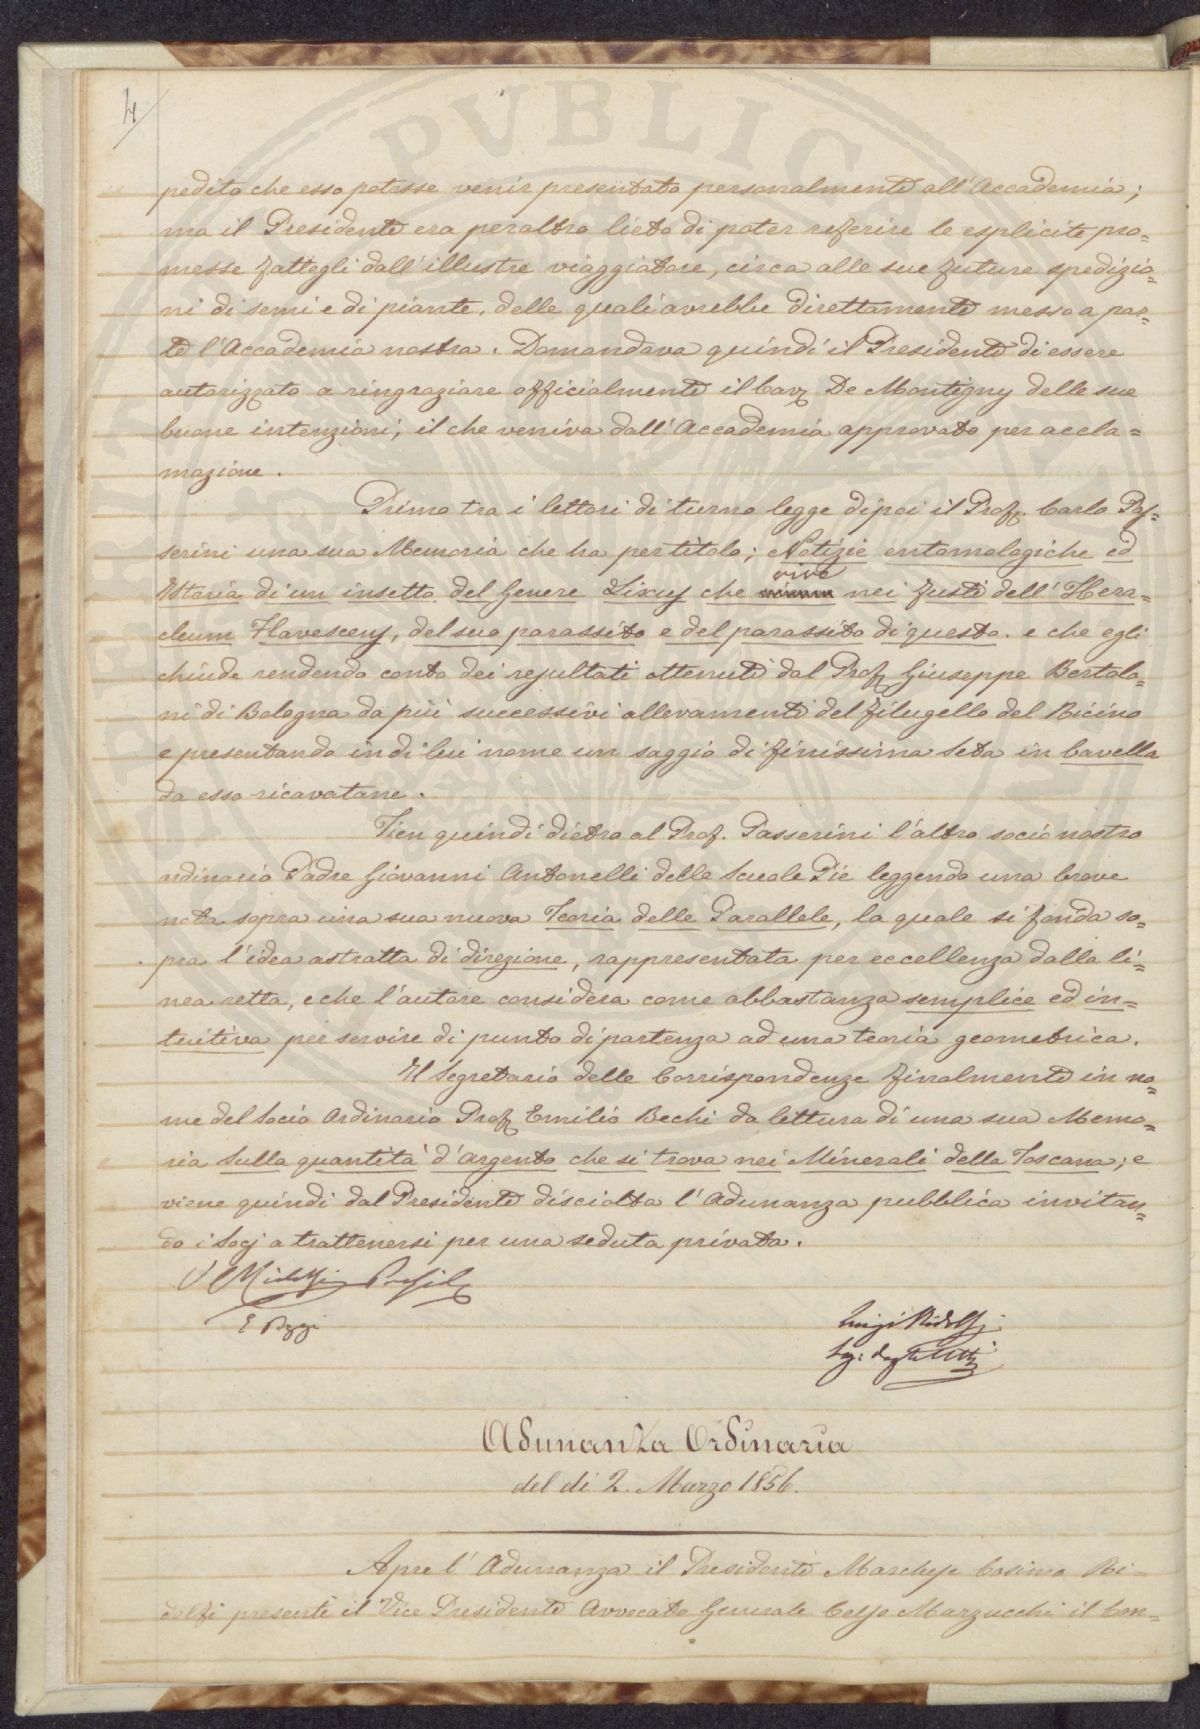 4
PVBLIC
pedito che esso potesse venir presentato personalmente all'Accademia;
ma il Presidente era peraltro lieto di poter referire le esplicite pro=
messe fattegli dall'illustre viaggiatore, circa alle sue future spedizio=
ni di semi e di piante, delle quali avrebbe direttamente messo a par=
te l'Accademia nostra. Domandava quindi il Presidente di essere
autorizzato a ringraziare officialmente il Cav. De Montigny delle sue
buone intenzioni; il che veniva dall'Accademia approvato per accla=
mazione.
Primo tra i lettori di turno legge dipoi il Prof. Carlo Pas=
serini una sua Memoria che ha per titolo; Notizie entomologiche ed
Istoria di un insetto del Genere Lixus che vive nei fusti dell'Hera=
cleum Flavescens, del suo parassito e del parassito di questo. e che egli
chiude rendendo conto dei resultati ottenuti dal Prof. Giuseppe Bertolo=
ni di Bologna da più successivi allevamenti del filugello del Ricino
e presentando in di lui nome un saggio di finissima Seta in bavella
da esso ricavatane.
Tien quindi dietro al Prof. Passerini l'altro socio nostro
ordinario Padre Giovanni Antonelli delle Scuole Pie leggendo una breve
nota sopra una sua nuova Teoria delle Parallele, la quale si fonda so=
pra l'idea astratta di direzione, rappresentata per eccellenza dalla li=
nea retta, e che l'autore considera come abbastanza semplice ed in=
tuitiva per servire di punto di partenza ad una teoria geometrica.
Il Segretario delle Corrispondenze finalmente in no=
me del Socio Ordinario Prof. Emilio Bechi da lettura di una sua Memo=
ria Sulla quantità d'argento che si trova nei Minerali della Toscana; e
viene quindi dal Presidente disciolta l'Adunanza pubblica invitan=
do i Socj a trattenersi per una seduta privata.
E Poggi
Luigi Ridolfi
Seg: degli Atti
Adunanza Ordinaria
del dì 2. Marzo 1856.
Apre l'Adunanza il Presidente Marchese Cosimo Ri=
dolfi presenti il Vice Presidente Avvocato Generale Celso Marzucchi il Con=